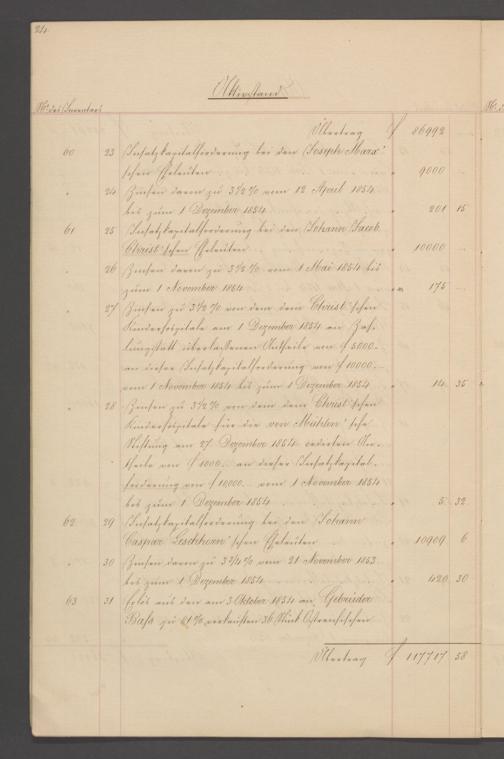 24.
Aktivstand
No des Inventars
Übertrag f 86992
60 23 Insatzkapitalforderung bei den Joseph Marx'
schen Eheleuten " 9000
" 24 Zinsen daran zu 3½% vom 12 April 1854
bis zum 1 Dezember 1854 " 201 15
61 25 Insatzkapitalforderung bei den Johann Jacob
Christ'schen Eheleuten " 10000
" 26 Zinsen daran zu 3½% vom 1 Mai 1854 bis
zum 1 November 1854 " 175
" 27 Zinsen zu 3½% von dem dem Christ'schen
Kinderhospitale am 1 Dezember 1854 an Zah-
lungsstatt überlassenen Antheile von f 5000.
an dieser Insatzkapitalforderung von f 10000.
vom 1 November 1854 bis zum 1 Dezember 1854 " 14 35
" 28 Zinsen zu 3½% von dem dem Christ'schen
Kinderhospitale für die von Mühlen'sche
Stiftung am 27 Dezember 1854 cedirten An-
theile von f 1000. an dieser Insatzkapital-
forderung von f 10,000. vom 1 November 1854
bis zum 1 Dezember 1854 " 5 32
62 29 Insatzkapitalforderung bei den Johann
Caspar Leschhorn'schen Eheleuten " 10909 6
" 30 Zinsen daran zu 3¾% vom 21 November 1853
bis zum 1 Dezember 1854 " 420 30
63 31 Erlös aus den am 3 Oktober 1854 an Gebrüder
Bass zu 81% verkauften 36 Stück Östreichischen
Übertrag f 117717 58